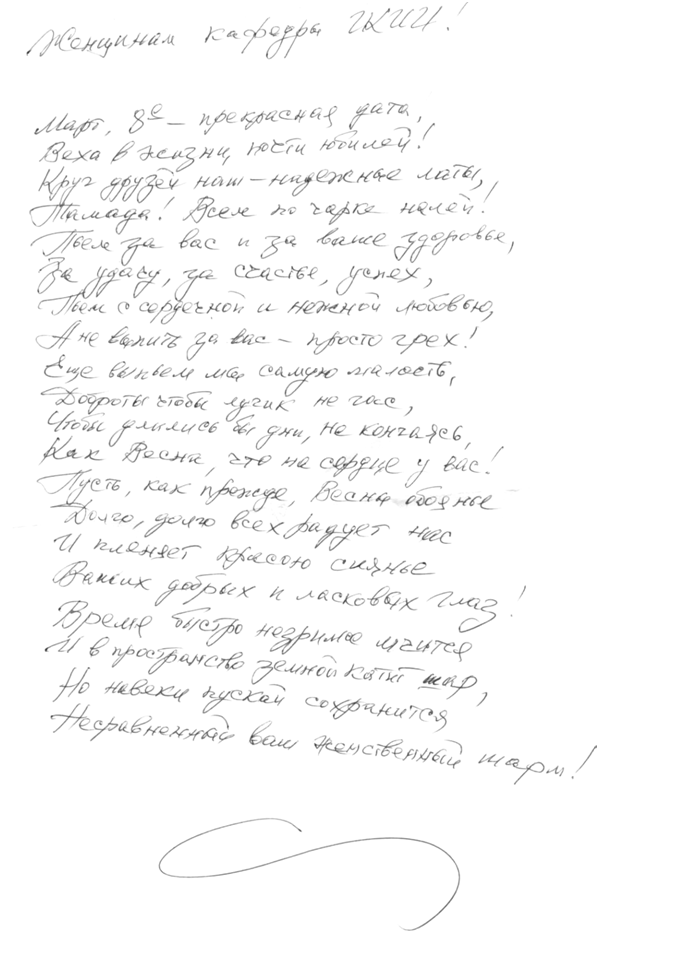 Женщинам кафедры ГКИИ!
Март, 8е – прекрасная дата,
Веха в жизни, почти юбилей!
Круг друзей наш – надежные латы,
Тамада! Всем по чарке налей!
Пьем за вас и за ваше здоровье,
За удачу, за счастье, успех,
Пьем с сердечной и нежной любовью,
А не выпить за вас – просто грех!
Еще выпьем мы самую малость,
Доброты чтобы лучик не гас,
Чтобы длились бы дни, не кончаясь,
Как Весна, что на сердце у вас!
Пусть, как прежде, Весна обоянье
Долго, долго всех радует нас
И пленяет красою сиянье
Ваших добрых и ласковых глаз!
Время быстро незримо мчится
И в пространство земной катит шар,
Но навеки пускай сохранится
Несравненный ваш женственный шарм!